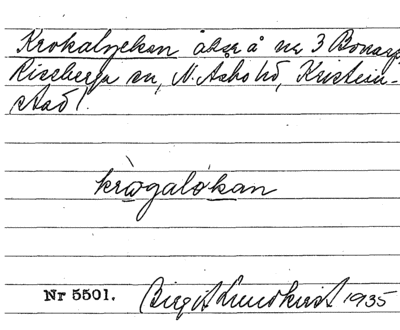 Krokalyckan åker å nr 3 Bonarp,
Riseberga sn, N. Åsbo hd, Kristian-
stads l.
krògalókan
Nr 5501. Birgit Lundkvist 1935